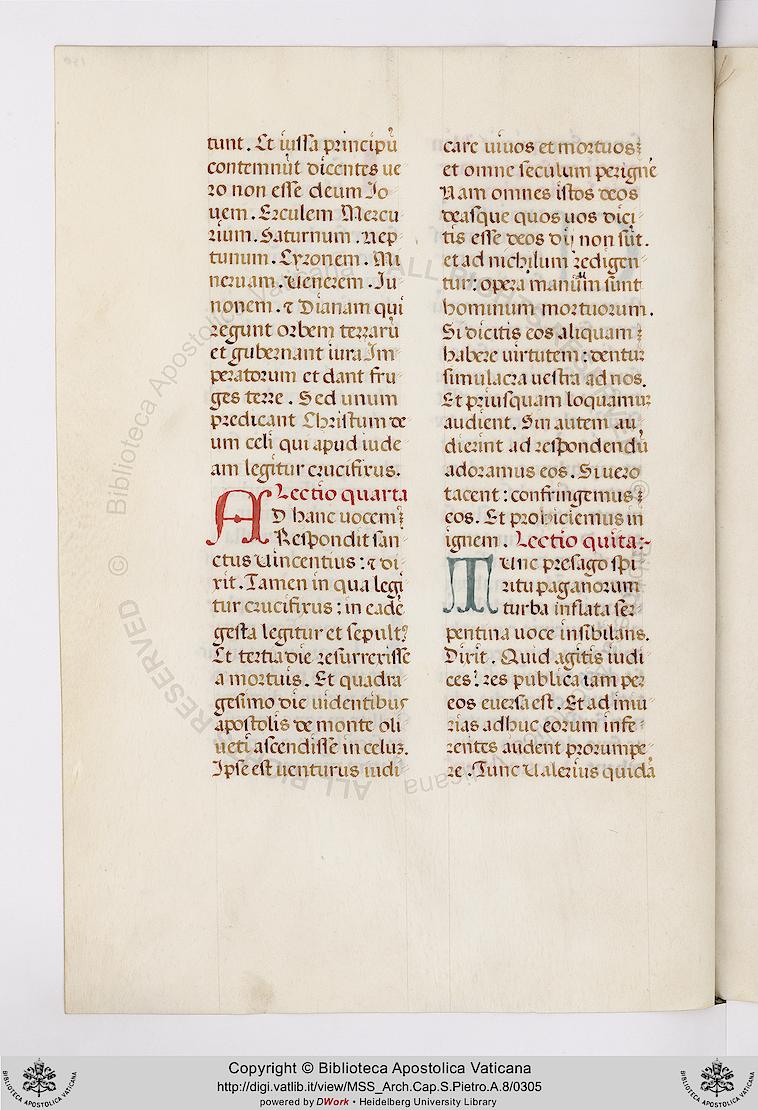 tunt. Et iussa principū
contemnūt dicentes ue
ro non esse deum Jo
uem. Erculem Mercu
rium. Saturnum. Nep
tunum. Cyronem. Mi
neruam. Uenerem. Iu
nonem. ⁊ Dianam qui
regunt orbem terrarū
et gubernant iura Im
peratorum et dant fru
ges terre. Sed unum
predicant Christum de
um celi qui apud iude
am legitur crucifixus.
Lectio quarta
AD hanc uocem
Respondit san
ctus Uincentius: ⁊ di
xit. Tamen in qua legi
tur crucifixus; in eadē
gesta legitur et sepultꝰ
Et tertia die resurrexisse
a mortuis. Et quadra
gesimo die uidentibus
apostolis de monte oli
ueti ascendisse in celuꝫ.
Ipse est uenturus iudi
care uiuos et mortuos:
et omne seculum per ignē
Nam omnes istos deos
deasque quos uos dici
tis esse deos dij non sūt.
et ad nichilum redigen
tur: opera manuum sunt
hominum mortuorum.
Si dicitis eos aliquam
habere uirtutem: dentur
simulacra uestra ad nos.
Et priusquam loquamur
audient. Sin autem au
dierint ad respondendū
adoramus eos. Si uero
tacent: confringemus
eos. Et prohiciemus in
ignem. Lectio quīta:
TUnc presago spi
ritu paganorum
turba inflata ser
pentina uoce insibilans.
Dixit. Quid agitis iudi
ces: res publica iam per
eos euersa est. Et ad iniu
rias adhuc eorum infe
rentes audent prorumpe
re. Tunc Ualerius quidā
© Biblioteca Apostolica Vaticana ALL RIGHTS RESERVED
Copyright © Biblioteca Apostolica Vaticana
http://digi.vatlib.it/view/MSS_Arch.Cap.S.Pietro.A.8/0305
powered by DWork • Heidelberg University Library
BIBLIOTECA APOSTOLICA VATICANA
BIBLIOTECA APOSTOLICA VATICANA